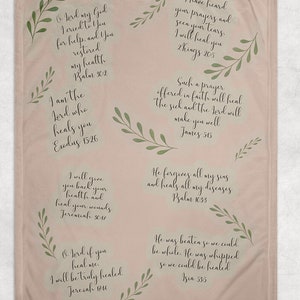 O Lord my God
I cried to You
for help, and You
restored
my health.
Psalm 30:2
I have heard
your prayers and
seen your tears.
I will heal you
2Kings 20:5
I am the
Lord who
heals you
Exodus 15:26
Such a prayer
offered in faith will heal
the sick and the Lord will
make you well
James 5:15
I will give
you back your
health and
heal your wounds
Jeremiah 30:17
He forgives all my sins
and heals all my diseases
Psalm 103:3
O Lord if you
heal me,
I will be truly healed
Jeremiah 17:14
He was beaten so we could
be whole. He was whipped
so we could be healed
Isa 53:5